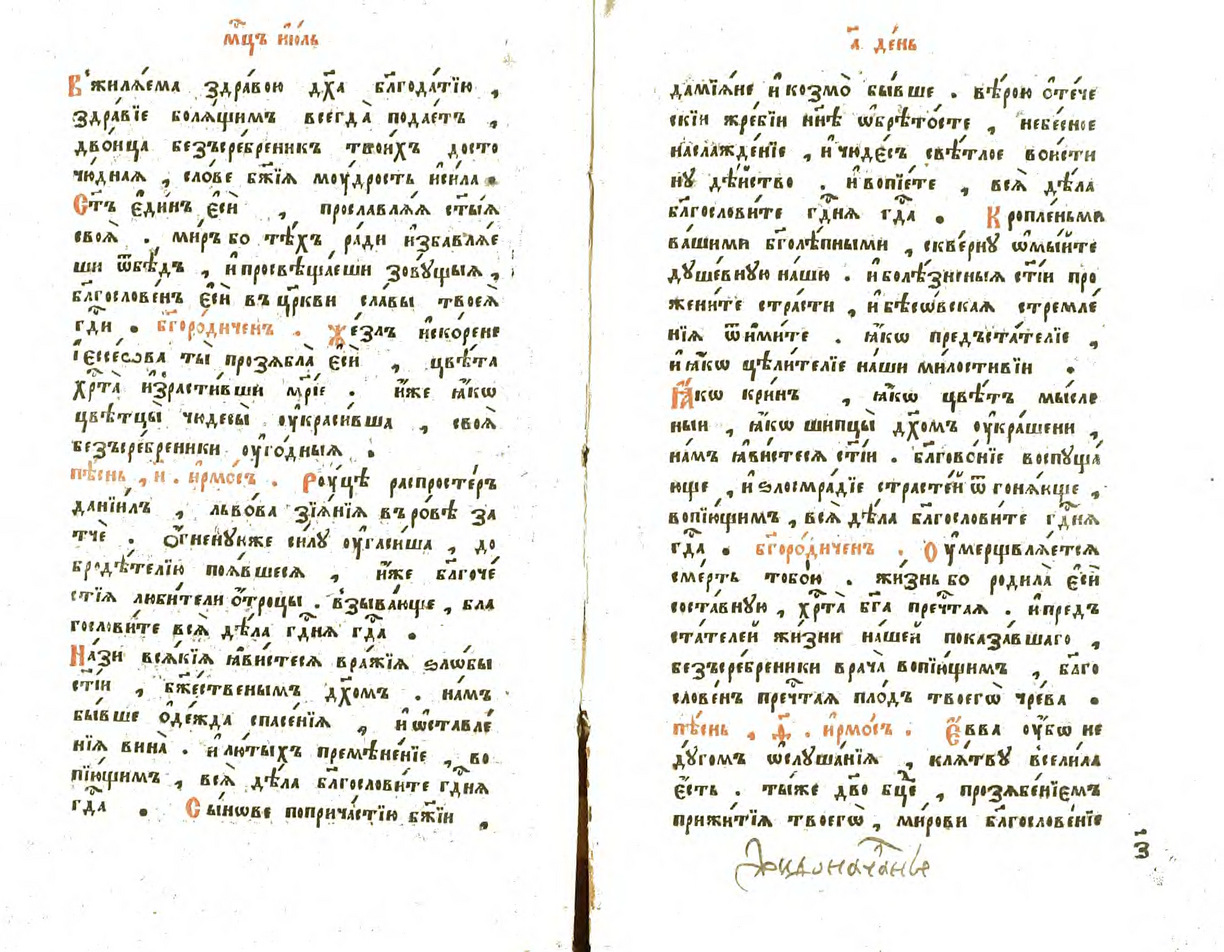 мц҃ъ ию́ль
В'жиля́ема здра́вою дх҃а бл҃года́тїю ,
здра́вїе боля́щимъ всегда̀ пода́етъ ,
дво́ица безъсре́бреникъ твои́хъ досто
чю́дная , сло́ве бж҃їя моу́дрость и҆си́ла .
Ст҃ъ є҆ди́нъ є҆сѝ , прославля́я ст҃ы́я
своя̀ . ми́ръ бо тѣ́хъ ра́ди и҆збавля́е
ши ѿбѣ́дъ , и҆просвѣща́еши зову́щыя ,
бл҃гослове́нъ є҆сѝ въ цр҃кви сла́вы твоея̀
гд҃и . бг҃оро́диченъ . же́злъ и҆с̾ко́рене
і҆ессе́ѡва ты̀ прозябла̀ є҆сѝ , цвѣ́та
хр҃та̀ и҆зрасти́вши мр҃і́е . и҆́же ꙗ҆́кѡ
цвѣтцы̀ чюдесы̀ оу҆краси́вша , своя̀
безъсре́бреники оу҆го́дныя .
пѣ́снь , и҃ . і҆рмо́съ . Роу́цѣ распросте́ръ
данїи́лъ , льво́ва зїя́нїя въ ро́вѣ за
тчѐ . о҆́гненуюже си́лу оу҆гаси́ша , до
бродѣ́телїю поя́вшеся , и҆́же бл҃гоче́
стїя люби́тели ѻ҆́троцы . взыва́юще , бла
гослови́те вся̀ дѣ́ла гдⷭ҇ня гдⷭ҇а .
На́зи вся́кїя ꙗ҆ви́стеся вра́жїя ѕло́бы
ст҃і́и , бж҃е́ственымъ дх҃омъ . на́мъ
бы́вше ѻ҆де́жда спасе́нїя , и҆ѡ҆ставле́
нїя вина̀ . и҆лю́тыхъ премѣне́нїе , во
пїю́щимъ , вся̀ дѣ́ла бл҃гослови́те гдⷭ҇ня
гдⷭ҇а . Сы́нѡве поприча́стїю бж҃їи ,
а҃ де́нь
дамїя́не и҆ козмо̀ бы́вше . вѣ́рою ѻ҆те́че
скїи жре́бїи нн҃ѣ ѡ҆брѣто́сте , небе́сное
наслажде́нїе , и҆ чюде́съ свѣ́тлое вои́сти
ну дѣ́йство . и҆ вопїе́те , вся̀ дѣ́ла
бл҃гослови́те гдⷭ҇ня гдⷭ҇а . Кропле́ньми
ва́шими бг҃олѣ́пными , скве́рну ѡ҆мы́йте
душе́вную на́шю . и҆ болѣ́зненыя ст҃і́и про
жени́те стра́сти , и҆ бѣсѡ́вская стремле́
нїя ѿими́те . ꙗ҆́кѡ предъста́телїе ,
и҆ ꙗ҆́кѡ цѣли́телїе на́ши ми́лостивїи .
Ꙗ҆́кѡ кри́нъ , ꙗ҆́кѡ цвѣ́тъ мы́сле
ныи , ꙗ҆́кѡ шипцы̀ дх҃омъ оу҆кра́шени ,
на́мъ ꙗ҆ви́стеся ст҃і́и . бл҃гово́нїе воспуща́
юще , и҆ ѕлосмра́дїе страсте́й ѿ гоня́юще ,
вопїю́щимъ , вся̀ дѣ́ла бл҃гослови́те гдⷭ҇ня
гдⷭ҇а . бг҃оро́диченъ . Оу҆мерщвля́ется
сме́рть тобо́ю . жи́знь бо родила̀ є҆сѝ
соста́вную , хр҃та̀ бг҃а пречⷭ҇тая . и҆ предъ
ста́телей жи́зни на́шей показа́вшаго ,
безъсре́бреники врача̀ вопїю́щимъ , бл҃го
слове́нъ пречⷭ҇тая пло́дъ твоегѡ̀ чре́ва .
пѣ́снь , ѳ҃ . і҆рмо́съ . Є҆́вва оу҆́бѡ не
ду́гомъ ѡ҆слу́шанїя , кля́тву всели́ла
є҆́сть . ты́же дв҃о бц҃е , прозябе́нїемъ
прижи́тїя твоегѡ̀ , ми́рови бл҃гослове́нїе
з҃